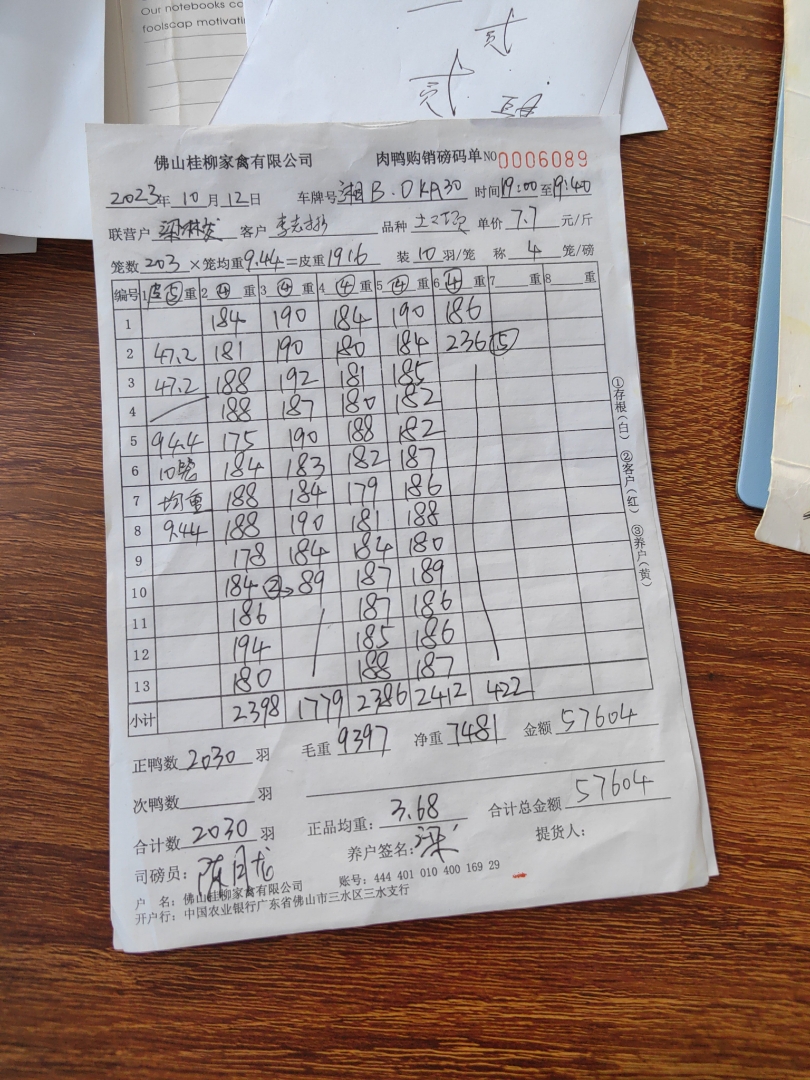 Our notebooks co
foolscap motivati
佛山桂柳家禽有限公司 肉鸭购销磅码单 NO 0006089
2023年 10月 12日 车牌号 湘B·0KA30 时间 19:00 至 19:40
联营户 客户 品种 单价 7.7 元/斤
笼数 203 ×笼均重 9.44 =皮重 1916 装 10 羽/笼 称 4 笼/磅
编号 1 皮⑤ 重 2 ④ 重 3 ④ 重 4 ④ 重 5 ④ 重 6 ④ 重 7 重 8 重
1 184 190 184 190 186
2 47.2 181 190 180 184 236 ⑤
3 47.2 188 192 181 185
4 188 187 180 182
5 94.4 175 190 188 182
6 184 183 182 187
7 均重 188 184 179 186
8 9.44 188 190 181 188
9 178 184 184 180
10 184 ②→89 187 189
11 186 187 186
12 194 185 186
13 180 188 187
小计 2398 1779 2386 2412 422
①存根(白) ②客户(红) ③养户(黄)
正鸭数 2030 羽 毛重 9397 净重 7481 金额 57604
次鸭数 羽
合计数 2030 羽 正品均重: 3.68 合计总金额 57604
司磅员: 养户签名: 梁 提货人:
户 名: 佛山桂柳家禽有限公司 账号: 444 401 010 400 169 29
开户行: 中国农业银行广东省佛山市三水区三水支行